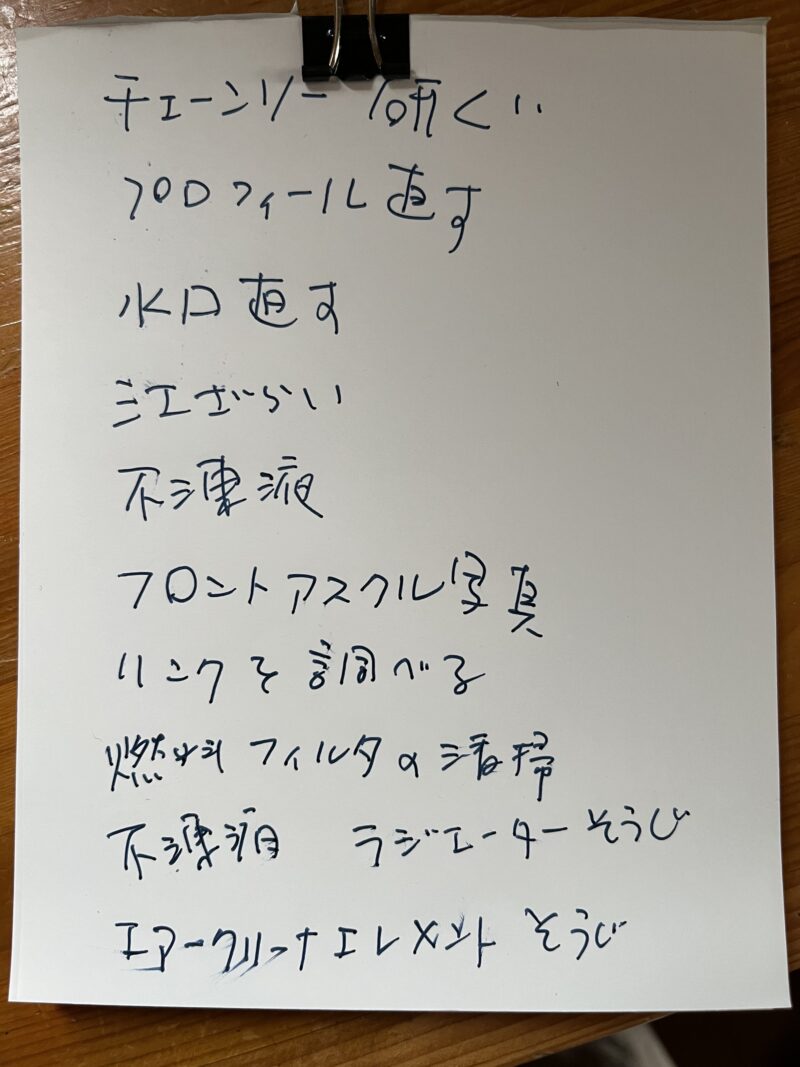 チェーンソー 研ぐ
プロフィール直す
水口直す
江ざらい
不凍液
フロントアスクル写真
リンクを調べる
燃料フィルタの清掃
不凍液 ラジエーターそうじ
エアークリーナエレメント そうじ